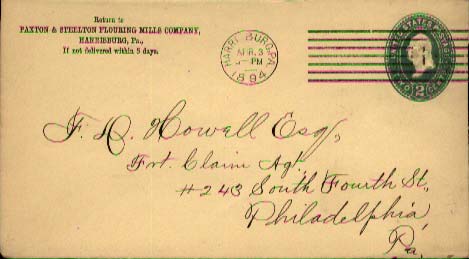 Return to
PAXTON & STEELTON FLOURING MILLS COMPANY,
HARRISBURG, Pa.,
If not delivered within 5 days.
HARRISBURG, PA.
APR. 3
PM
1894
UNITED STATES
TWO CENTS
2
F. D. Howell Esq,
Frt. Claim Agt.
#243 South Fourth St.,
Philadelphia,
Pa.